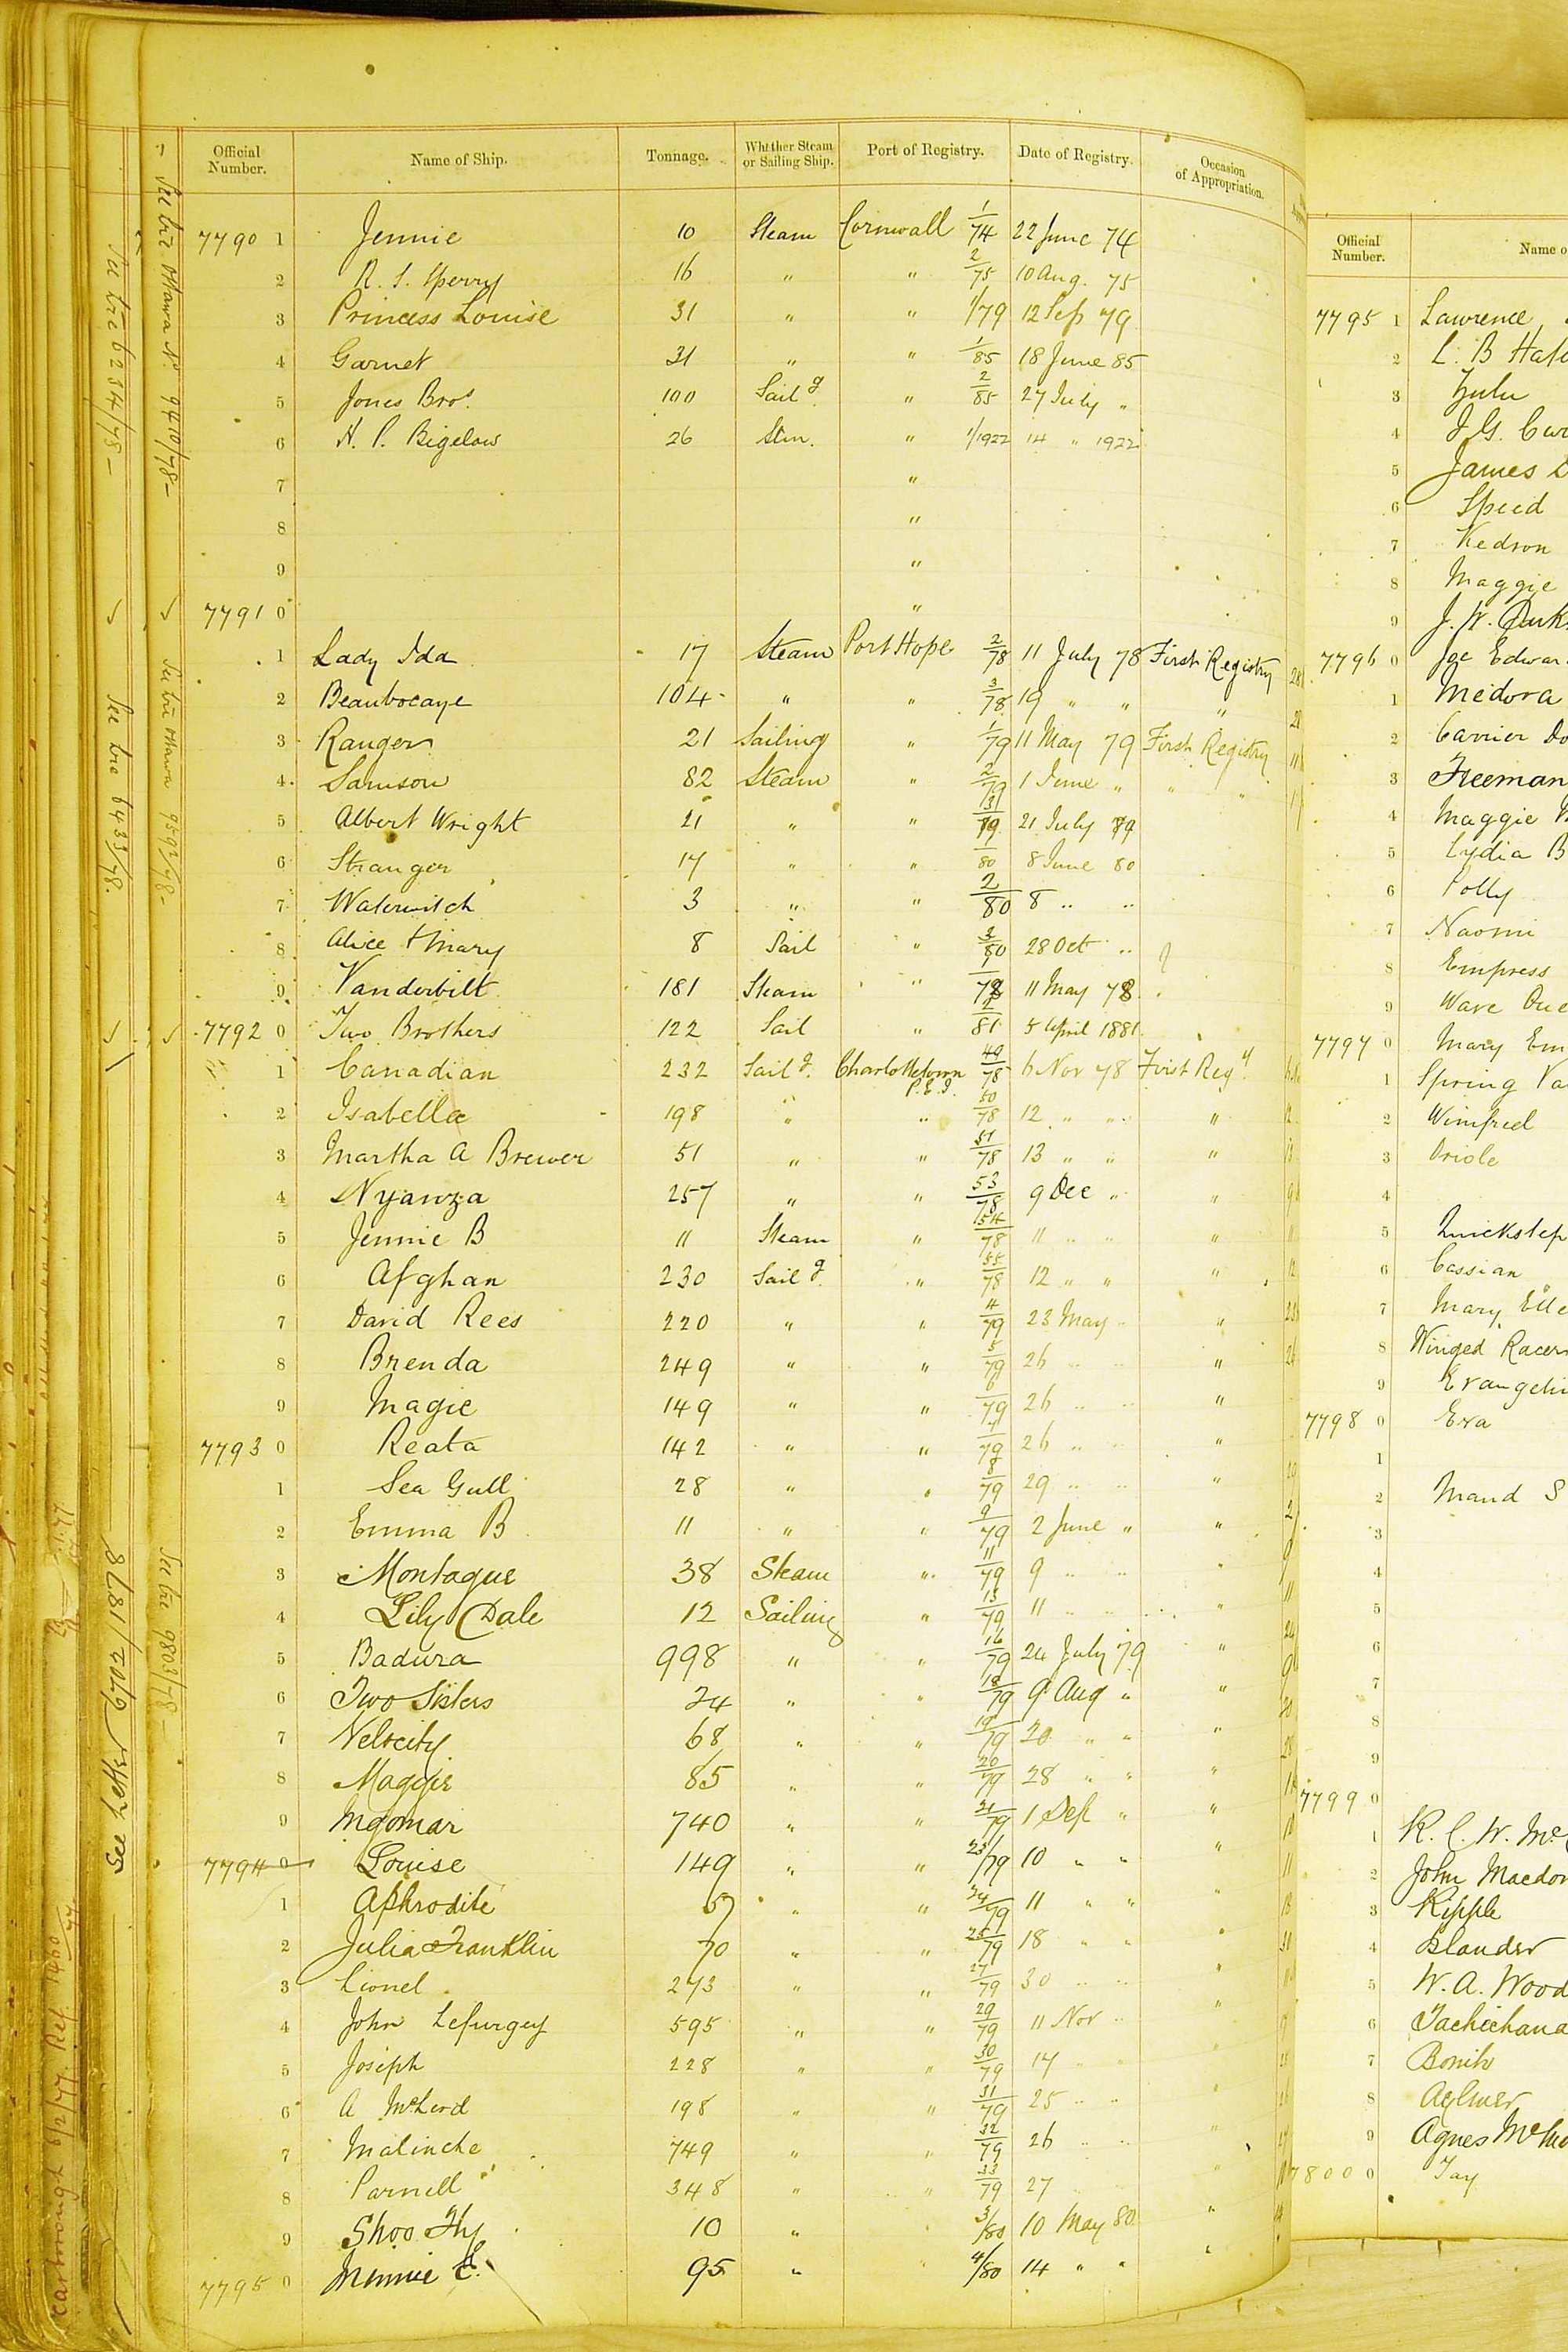 Official Number. Name of Ship. Tonnage. Whether Steam or Sailing Ship. Port of Registry. Date of Registry. Occasion of Appropriation.
7790 1 Jennie 10 Steam Cornwall 1/74 22 June 74
2 R. S. Sperry 16 " " 2/75 10 Aug. 75
3 Princess Louise 31 " " 1/79 12 Sep 79
4 Garnet 31 " " 1/85 18 June 85
5 Jones Bros. 100 Sailg " 2/85 27 July "
6 H. P. Bigelow 26 Stm. " 1/1922 14 " 1922
7 "
8 "
9 "
7791 0 "
1 Lady Ida 17 Steam Port Hope 2/78 11 July 78 First Registry
2 Beaubocaye 104 " " 3/78 19 " " "
3 Ranger 21 Sailing " 1/79 11 May 79 First Registry
4 Samson 82 Steam " 2/79 1 June " " "
5 Albert Wright 21 " " 3/79 21 July 79
6 Stranger 17 " " 1/80 8 June 80
7 Waterwitch 3 " " 2/80 8 " "
8 Alice & Mary 8 Sail " 3/80 28 Oct "
9 Vanderbilt 181 Steam " 1/78 11 May 78
7792 0 Two Brothers 122 Sail " 2/81 5 April 1881
1 Canadian 232 Sailg. Charlottetown P.E.I. 49/78 6 Nov 78 First Regy
2 Isabella 198 " " 50/78 12 " " "
3 Martha A Brewer 51 " " 51/78 13 " " "
4 Nyanza 257 " " 53/78 9 Dec " "
5 Jennie B 11 Steam " 54/78 11 " " "
6 Afghan 230 Sailg " 55/78 12 " " "
7 David Rees 220 " " 4/79 23 May " "
8 Brenda 249 " " 5/79 26 " " "
9 Magic 149 " " 6/79 26 " " "
7793 0 Reata 142 " " 7/79 26 " " "
1 Sea Gull 28 " " 8/79 29 " " "
2 Emma B 11 " " 9/79 2 June " "
3 Montague 38 Steam " 11/79 9 " " "
4 Lily Dale 12 Sailing " 13/79 11 " " "
5 Badura 998 " " 16/79 24 July 79 "
6 Two Sisters 24 " " 18/79 9 Aug " "
7 Velocity 68 " " 19/79 20 " " "
8 Maggie 85 " " 20/79 28 " " "
9 Ingomar 740 " " 21/79 1 Sep " "
7794 0 Louise 149 " " 23/79 10 " " "
1 Aphrodite 67 " " 24/79 11 " " "
2 Julia Franklin 70 " " 25/79 18 " " "
3 Lionel 273 " " 27/79 30 " " "
4 John Lefurgey 595 " " 29/79 11 Nov " "
5 Joseph 228 " " 30/79 14 " " "
6 A McLeod 198 " " 31/79 25 " " "
7 Malinche 749 " " 32/79 26 " " "
8 Parnell 348 " " 33/79 27 "
9 Shoo Fly 10 " 3/80 10 May 80 "
7795 0 Minnie E. 95 " " 4/80 14 " " "
See Letter 9702/1878
See tre 6234/78
See tre 6433/78
See tre 9410/78
See tre 9592/78
See tre 9803/78
Official Number. Name o
7795 1 Lawrence
2 L. B Hat
3 Zulu
4 J. G.
5 James
6 Speed
7 Kedron
8 Maggie
9 J. W.
7796 0 Joe Edwar
1 Medora
2 Carrier Do
3 Freeman
4 Maggie
5 Lydia B
6 Polly
7 Naomi
8 Empress
9 Wave Que
7797 0 Mary Em
1 Spring Va
2 Winifred
3 Oriole
4
5 Quickstep
6 Cassian
7 Mary Elle
8 Winged Racer
9 Evangeli
7798 0 Eva
1
2 Maud S
3
4
5
6
7
8
9
7799 0
1 K. C. W. Mc
2 John Macdon
3 Ripple
4 Islander
5 W. A. Wood
6 Tachichana
7 Bonito
8 Aylmer
9 Agnes Mc
7800 0 Tay